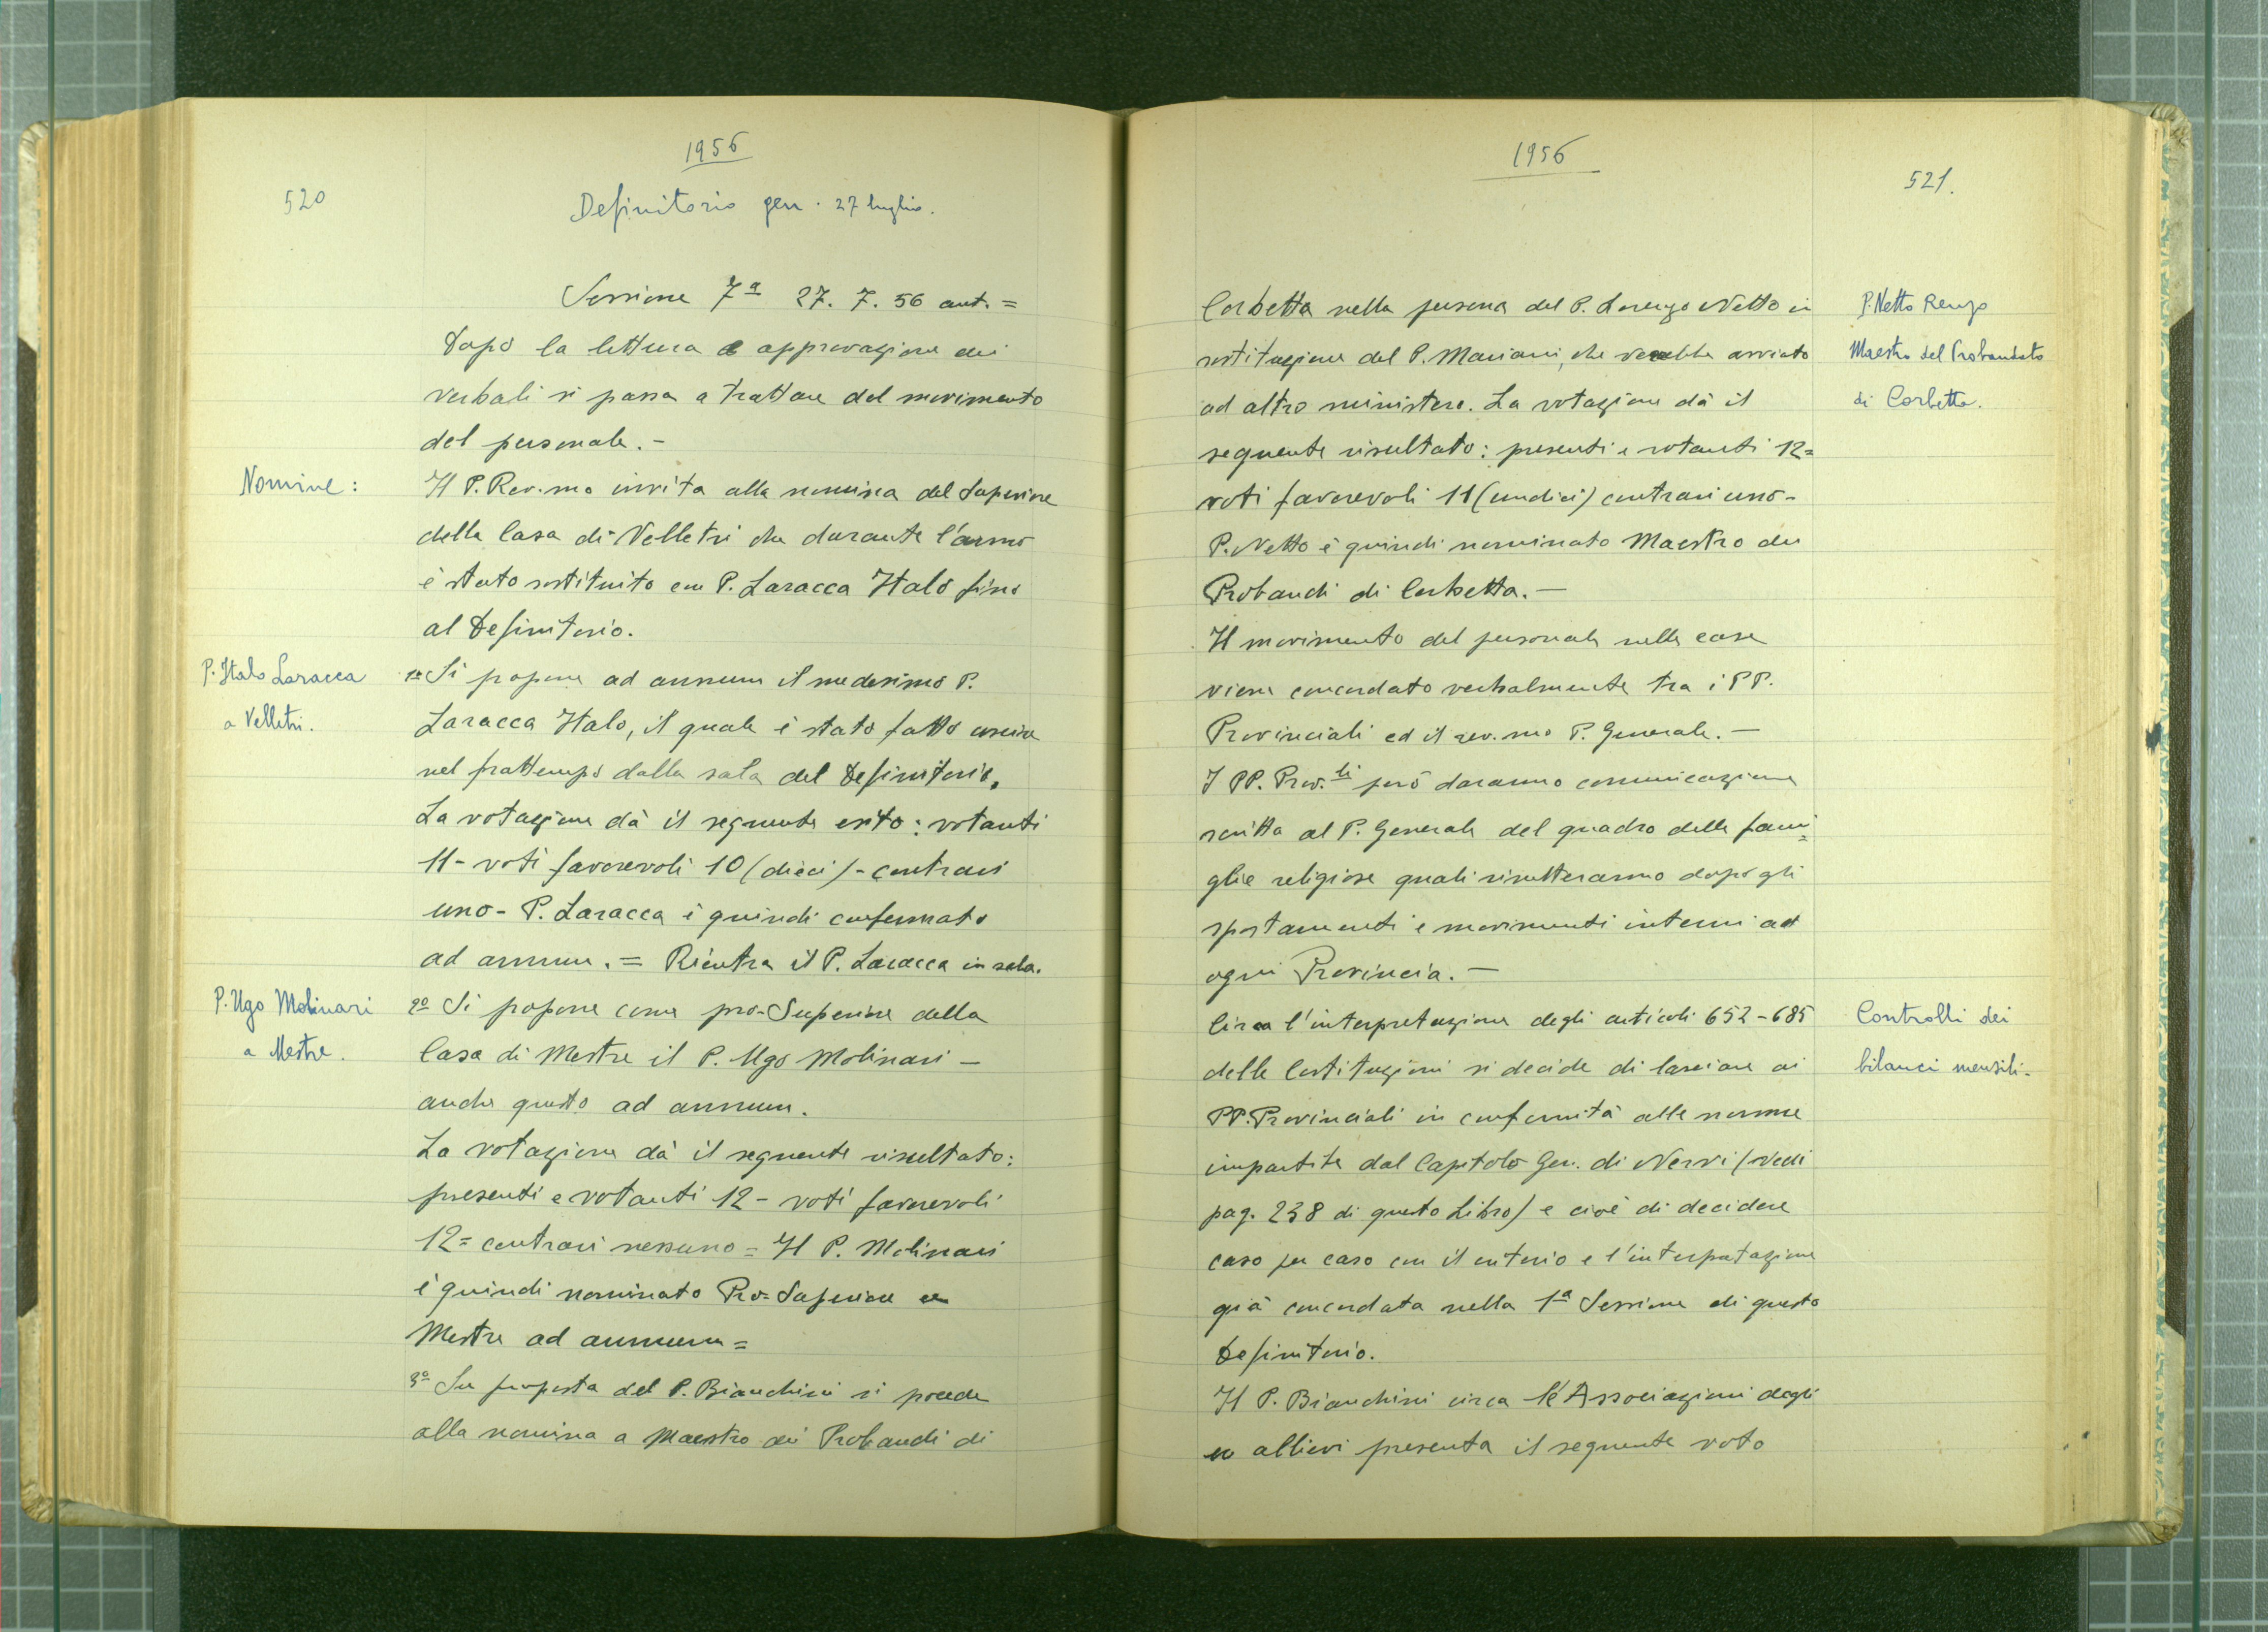 1956
520
Definitorio gen. 27 luglio.
Sessione 7ª 27. 7. 56 ant. =
Dopo la lettura e approvazione dei
verbali si passa a trattare del movimento
del personale. -
Nomine:
Il P. Rev.mo invita alla nomina del Superiore
della Casa di Velletri che durante l'anno
è stato sostituito con P. Laracca Italo fino
al Definitorio.
P. Italo Laracca
a Velletri.
1º Si propone ad annum il medesimo P.
Laracca Italo, il quale è stato fatto uscire
nel frattempo dalla sala del Definitorio.
La votazione dà il seguente esito: votanti
11 - voti favorevoli 10 (dieci) - contrari
uno - P. Laracca è quindi confermato
ad annum. = Rientra il P. Laracca in sala.
P. Ugo Molinari
a Mestre.
2º Si propone come pro-Superiore della
Casa di Mestre il P. Ugo Molinari -
anche questo ad annum.
La votazione dà il seguente risultato:
presenti e votanti 12 - voti favorevoli
12 = contrari nessuno = Il P. Molinari
è quindi nominato Pro-Superiore a
Mestre ad annum =
3º Su proposta del P. Bianchini si procede
alla nomina a Maestro dei Probandi di
1956
521.
Corbetta nella persona del P. Lorenzo Netto in
sostituzione del P. Mariani, che verrebbe avviato
ad altro ministero. La votazione dà il
seguente risultato: presenti e votanti 12 =
voti favorevoli 11 (undici) contrari uno -
P. Netto è quindi nominato Maestro dei
Probandi di Corbetta. -
P. Netto Renzo
Maestro del Probandato
di Corbetta.
Il movimento del personale nelle case
viene concordato verbalmente tra i PP.
Provinciali ed il rev.mo P. Generale. -
I PP. Prov.li però daranno comunicazione
scritta al P. Generale del quadro delle fami=
glie religiose quali risulteranno dopo gli
spostamenti e movimenti interni ad
ogni Provincia. -
Circa l'interpretazione degli articoli 652 - 685
delle Costituzioni si decide di lasciare ai
PP. Provinciali in conformità alle norme
impartite dal Capitolo Gen. di Nervi (vedi
pag. 238 di questo Libro) e cioè di decidere
caso per caso con il criterio e l'interpretazione
già concordata nella 1ª Sessione di questo
Definitorio.
Controlli dei
bilanci mensili -
Il P. Bianchini circa le Associazioni degli
ex allievi presenta il seguente voto